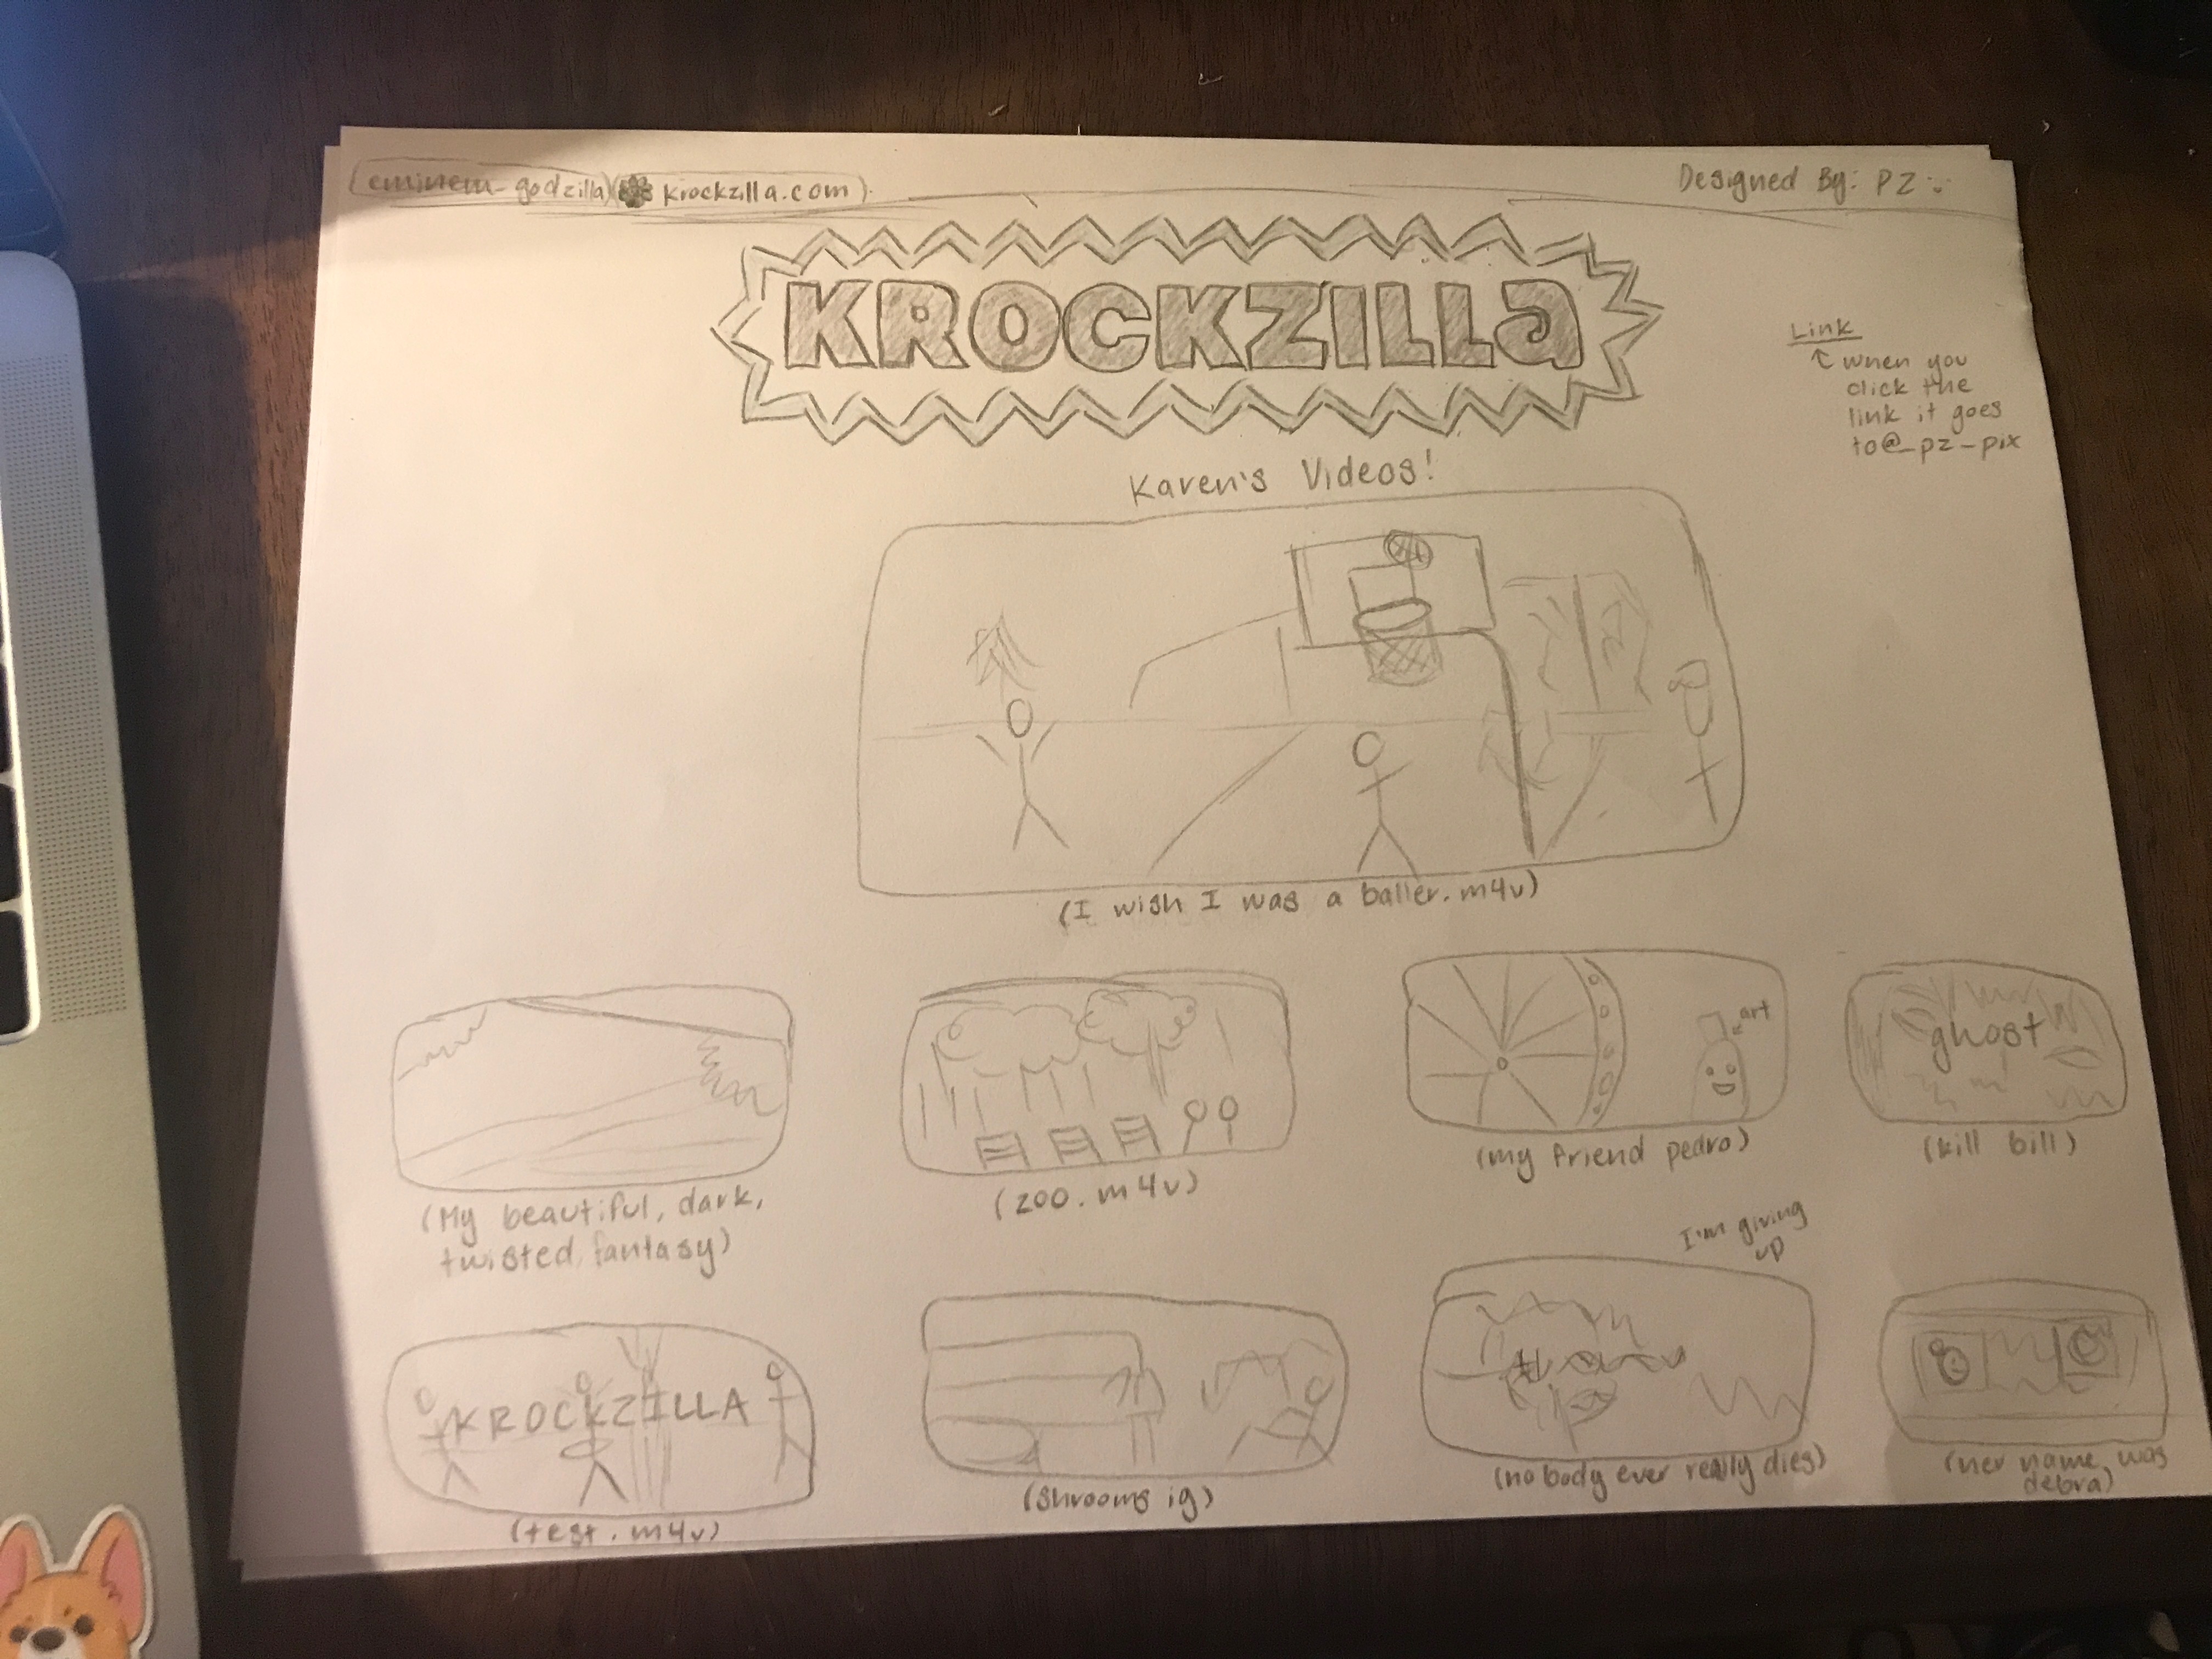 (eminem-godzilla)
krockzilla.com)
Designed By: PZ
KROCKZILLa
Link
when you
click the
link it goes
to@_pz_pix
Karen's Videos!
(I wish I was a baller.m4v)
art
ghost
(My beautiful, dark,
twisted, fantasy)
(zoo.m4v)
(my friend pedro)
(kill bill)
I'm giving
up
KROCKZILLA
(test.m4v)
(shrooms ig)
(nobody ever really dies)
(her name was
debra)